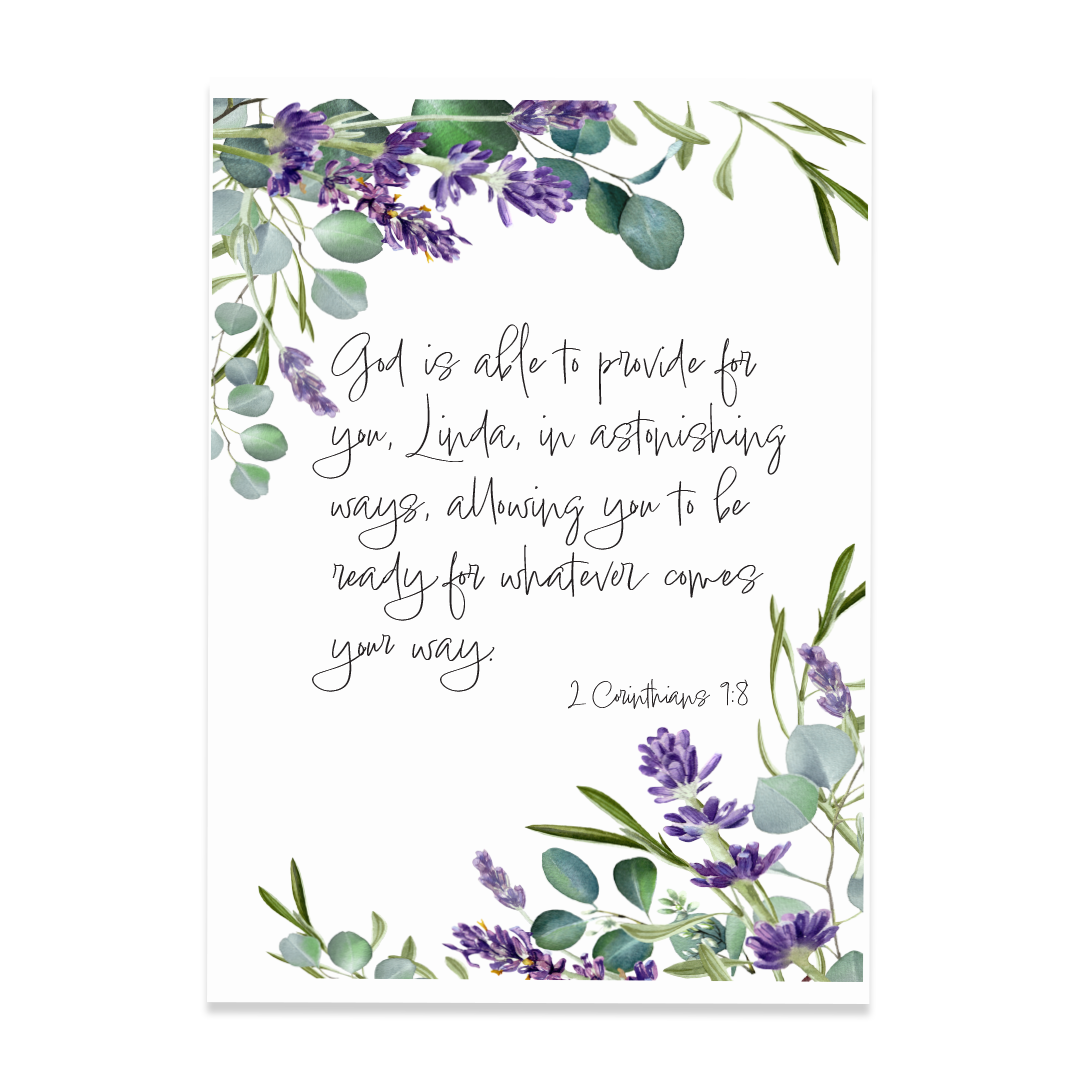 God is able to provide for
you, Linda, in astonishing
ways, allowing you to be
ready for whatever comes
your way.
2 Corinthians 9:8